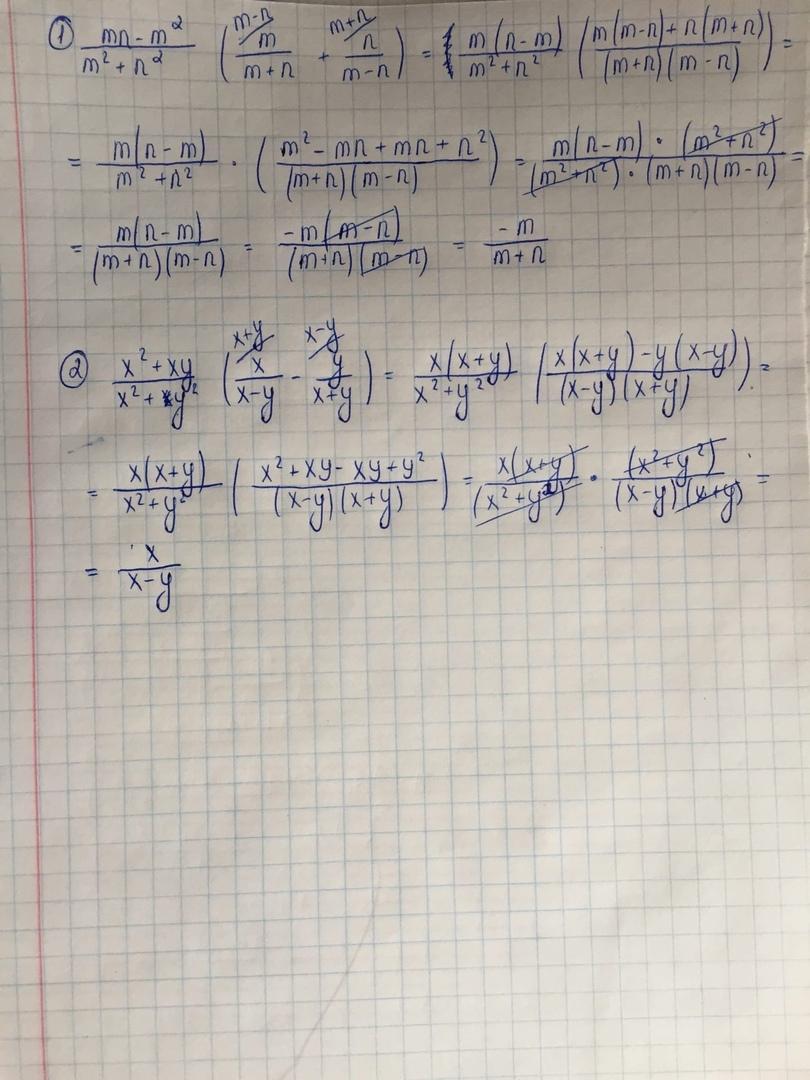 ① (mn - m²)/(m² + n²) (m-n/ m/(m+n) + m+n/ n/(m-n)) = m(n-m)/(m²+n²) (m(m-n)+n(m+n))/((m+n)(m-n)) =
= m(n-m)/(m²+n²) · (m² - mn + mn + n²)/((m+n)(m-n)) = m(n-m)·(m²+n²)/((m²+n²)·(m+n)(m-n)) =
= m(n-m)/((m+n)(m-n)) = -m(m-n)/((m+n)(m-n)) = -m/(m+n)
② (x²+xy)/(x²+y²) (x+y/ x/(x-y) - x-y/ y/(x+y)) = x(x+y)/(x²+y²) (x(x+y)-y(x-y))/((x-y)(x+y)) =
= x(x+y)/(x²+y²) (x²+xy-xy+y²)/((x-y)(x+y)) = x(x+y)/(x²+y²) · (x²+y²)/((x-y)(x+y)) =
= x/(x-y)